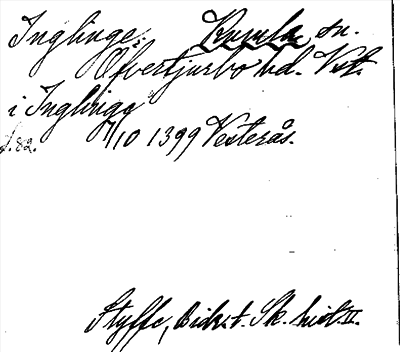 Inglinge. Kumla sn.
Öfvertjurbo hd. Vst.
i Inglinga
f. 82. 1/10 1399 Vesterås.
Styffe, Bidr. t. Sk. hist. II.